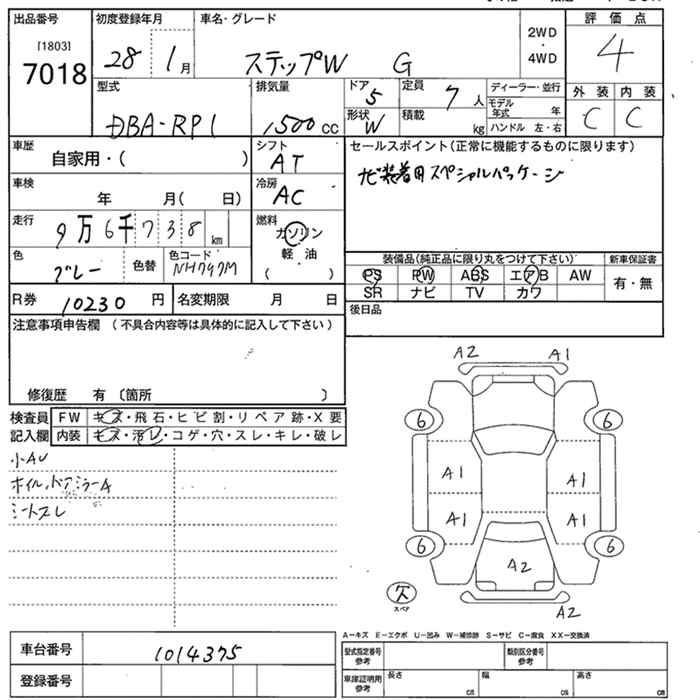 出品番号 初度登録年月 車名・グレード 評価点
[1803]
7018 28 1月 ステップW G 2WD・4WD 4
型式 排気量 ドア 5 定員 7人 ディーラー・並行 外装 内装
DBA-RP1 1500cc 形状 W 積載 kg モデル年式 年 C C
ハンドル 左・右
車歴 自家用・( ) シフト AT セールスポイント(正常に機能するものに限ります)
車検 年 月( 日) 冷房 AC ナビ装着用スペシャルパッケージ
走行 9万6千738km 燃料 ガソリン
軽油
( )
色 グレー 色替 色コード NH797M 装備品(純正品に限り丸をつけて下さい) 新車保証書
PS PW ABS エアB AW 有・無
SR ナビ TV カワ
R券 10230円 名変期限 月 日 後日品
注意事項申告欄(不具合内容等は具体的に記入して下さい)
修復歴 有〔箇所 〕
検査員 FW キズ・飛石・ヒビ割・リペア跡・X要
記入欄 内装 キズ・汚レ・コゲ・穴・スレ・キレ・破レ
小AU
ホイル、ドアミラーA
シートスレ
A2 A1
6 6
A1 A1
A1 A1
6 6
A2
欠
スペア
A2
A-キズ E-エクボ U-凹み W-補修跡 S-サビ C-腐食 XX-交換済
車台番号 1014375 型式指定番号 参考 類別区分番号 参考
登録番号 車庫証明用 参考 長さ cm 幅 cm 高さ cm